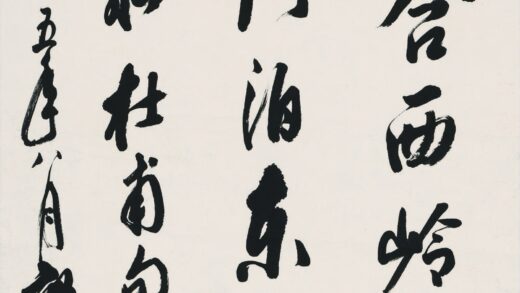 含西岭
门泊东
杜甫句
五年八月